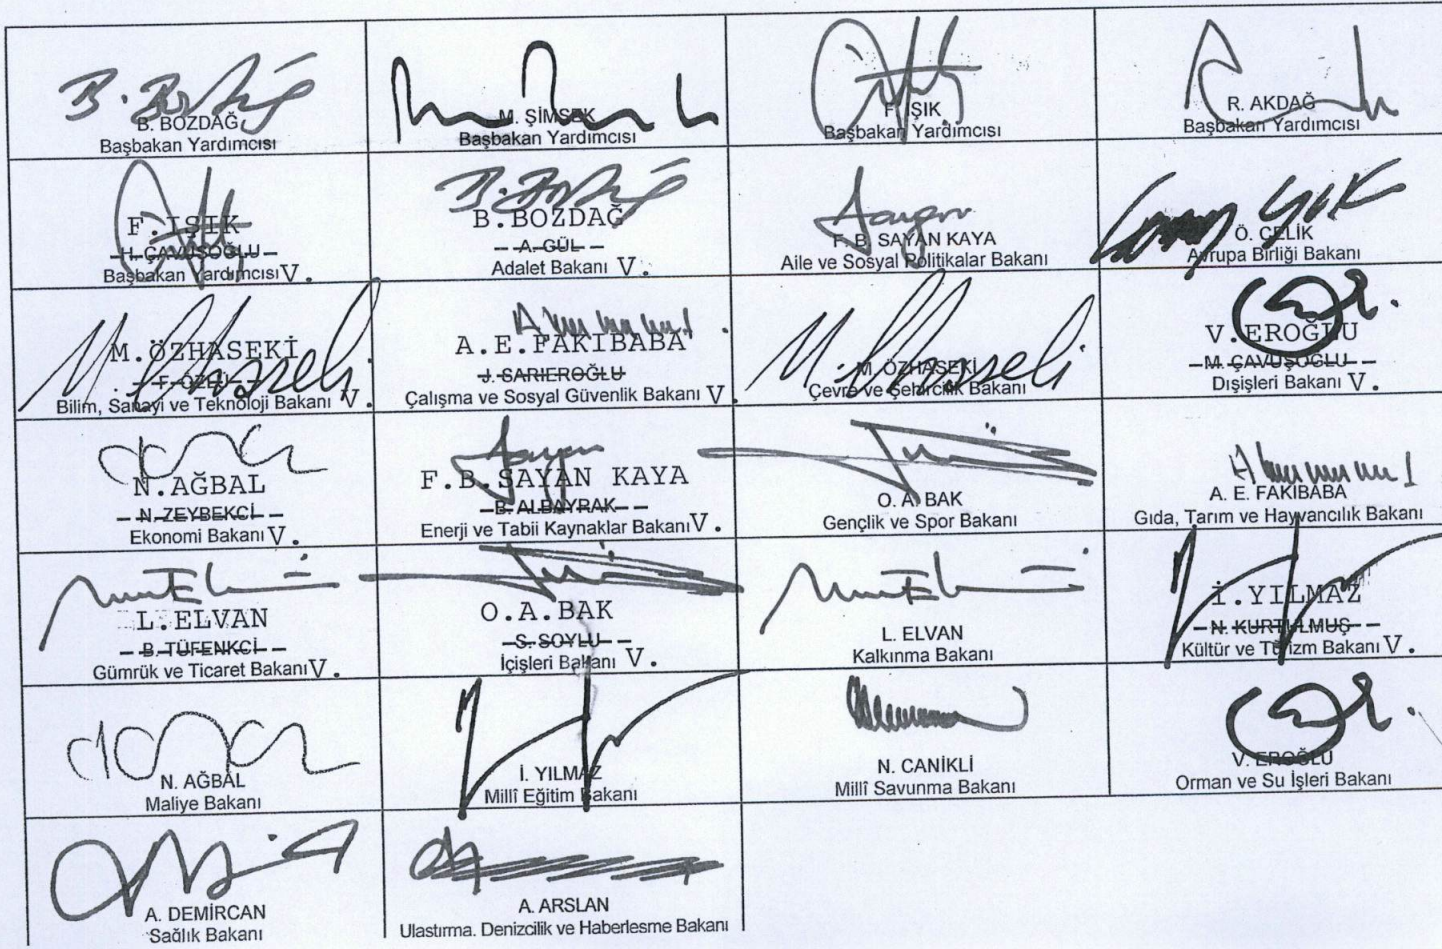 B. BOZDAĞ
Başbakan Yardımcısı
M. ŞİMŞEK
Başbakan Yardımcısı
F. IŞIK
Başbakan Yardımcısı
R. AKDAĞ
Başbakan Yardımcısı
F. IŞIK
H. ÇAVUŞOĞLU
Başbakan Yardımcısı V.
B. BOZDAĞ
A. GÜL
Adalet Bakanı V.
F. B. SAYAN KAYA
Aile ve Sosyal Politikalar Bakanı
Ö. ÇELİK
Avrupa Birliği Bakanı
M.ÖZHASEKİ
F. ÖZLÜ
Bilim, Sanayi ve Teknoloji Bakanı V.
A.E.FAKIBABA
J. SARIEROĞLU
Çalışma ve Sosyal Güvenlik Bakanı V.
M. ÖZHASEKİ
Çevre ve Şehircilik Bakanı
V. EROĞLU
M. ÇAVUŞOĞLU
Dışişleri Bakanı V.
N.AĞBAL
N. ZEYBEKCİ
Ekonomi Bakanı V.
F.B.SAYAN KAYA
B. ALBAYRAK
Enerji ve Tabii Kaynaklar Bakanı V.
O. A. BAK
Gençlik ve Spor Bakanı
A. E. FAKIBABA
Gıda, Tarım ve Hayvancılık Bakanı
L.ELVAN
B. TÜFENKCİ
Gümrük ve Ticaret Bakanı V.
O.A.BAK
S. SOYLU
İçişleri Bakanı V.
L. ELVAN
Kalkınma Bakanı
İ.YILMAZ
N. KURTULMUŞ
Kültür ve Turizm Bakanı V.
N. AĞBAL
Maliye Bakanı
İ. YILMAZ
Millî Eğitim Bakanı
N. CANİKLİ
Millî Savunma Bakanı
V. EROĞLU
Orman ve Su İşleri Bakanı
A. DEMİRCAN
Sağlık Bakanı
A. ARSLAN
Ulaştırma. Denizcilik ve Haberleşme Bakanı